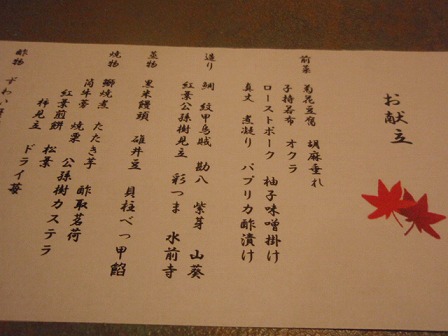 お献立
前菜 菊花豆腐 胡麻垂れ
子持若布 オクラ
ローストポーク 柚子味噌掛け
真丈 煮凝り パプリカ酢漬け
造り 鯛 紋甲烏賊 勘八 紫芽 山葵
紅葉公孫樹見立 彩つま 水前寺
蒸物 黒米饅頭 碓井豆 貝柱べっ甲餡
焼物 鰤焼煮 たたき芋 酢取茗荷
筒牛蒡 焼栗 公孫樹カステラ
紅葉煎餅 松葉
柿見立 ドライ苺
酢物 ずわい